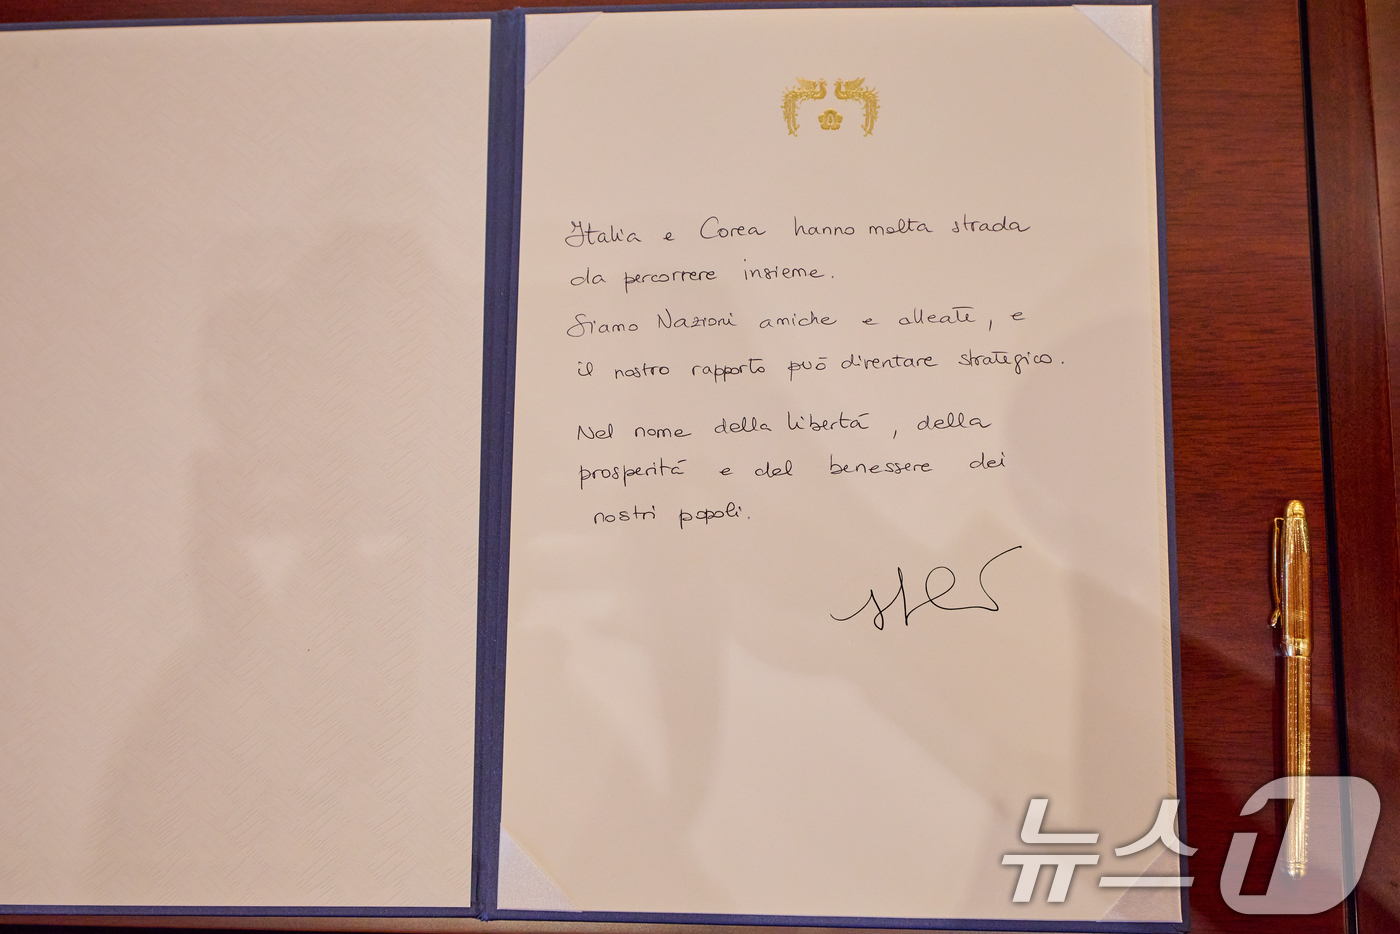 Italia e Corea hanno molta strada
da percorrere insieme.
Siamo Nazioni amiche e alleate, e
il nostro rapporto può diventare strategico.
Nel nome della libertà, della
prosperità e del benessere dei
nostri popoli.
뉴스1